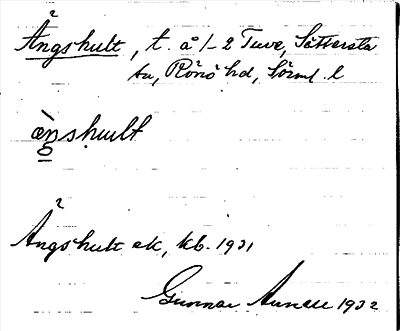 Ängshult, t. å 1-2 Tuve, Sättersta
sn, Rönö hd, Sörml. l
ængshult
Ängshult ek, kb. 1931
Gunnar 1932